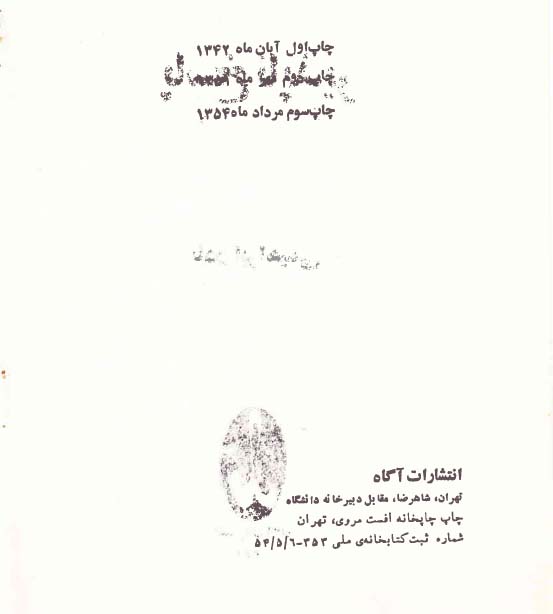 چاپ‌اول آبان ماه ۱۳۴۲
چاپ‌دوم ماه
چاپ‌سوم مرداد ماه ۱۳۵۴
انتشارات آگاه
تهران، شاهرضا، مقابل دبیرخانه دانشگاه
چاپ چاپخانه افست مروی، تهران
شماره ثبت کتابخانه‌ی ملی ۳۵۳-۵۴/۵/۶